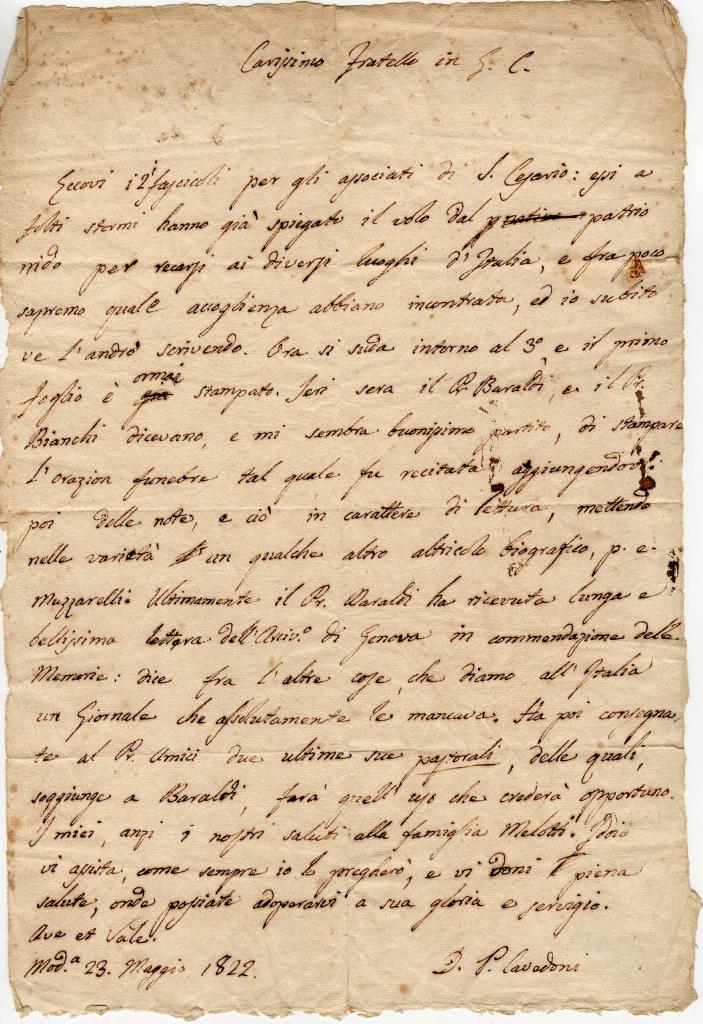 Carissimo Fratello in G. C.
Eccovi 12 fascicoli per gli associati di S. Cesario: essi a
folti stormi hanno già spiegato il volo dal patrio
nido per recarsi ai diversi luoghi d'Italia, e fra poco
sapremo quale accoglienza abbiano incontrata, ed io subito
ve l'andrò scrivendo. Ora si suda intorno al 3º, e il primo
foglio è ormai stampato. Jeri sera il Pr. Baraldi, e il Pr.
Bianchi dicevano, e mi sembra buonissimo partito, di stampare
l'orazion funebre tal quale fu recitata aggiungendovi
poi delle note, e ciò in carattere di lettura, mettendo
nelle varietà un qualche altro altricolo biografico, p. e.
Muzzarelli. Ultimamente il Pr. Baraldi ha ricevuta lunga e
bellissima lettera dell'Arciv.º di Genova in commendazione delle
Memorie: dice fra l'altre cose, che diamo all'Italia
un Giornale che assolutamente le mancava. Ha poi consegna
te al Pr. Amici due ultime sue pastorali, delle quali,
soggiunge a Baraldi, farà quell'uso che crederà opportuno.
I miei, anzi i nostri saluti alla famiglia Melotti. Iddio
vi assista, come sempre io lo pregherò, e vi doni piena
salute, onde possiate adoperarvi a sua gloria e servigio.
Ave et Vale.
Mod.ª 23. Maggio 1822. D. P. Cavedoni